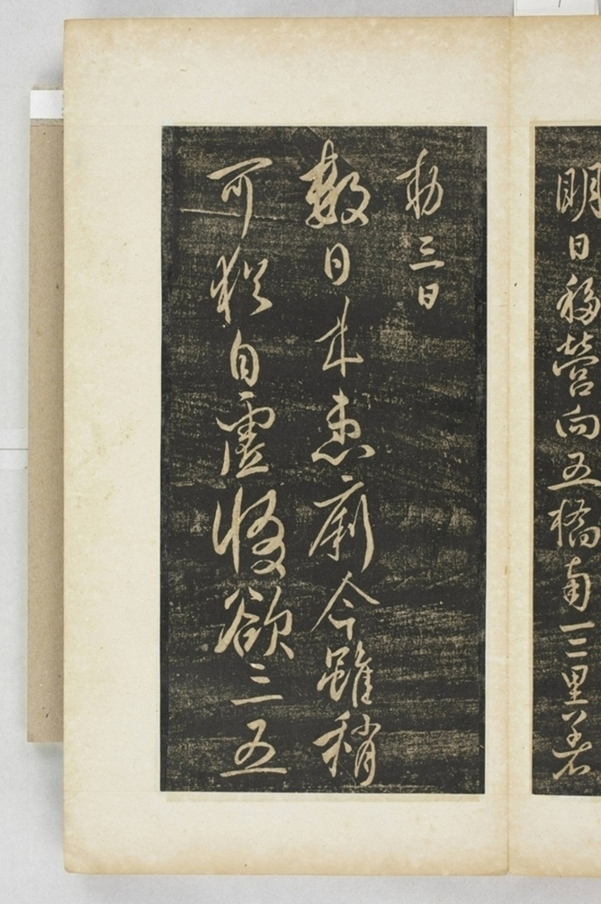 明日移營向五橋南一二里著
勅三日
數日來患痢今雖稍
可猶自虛惙欲三五